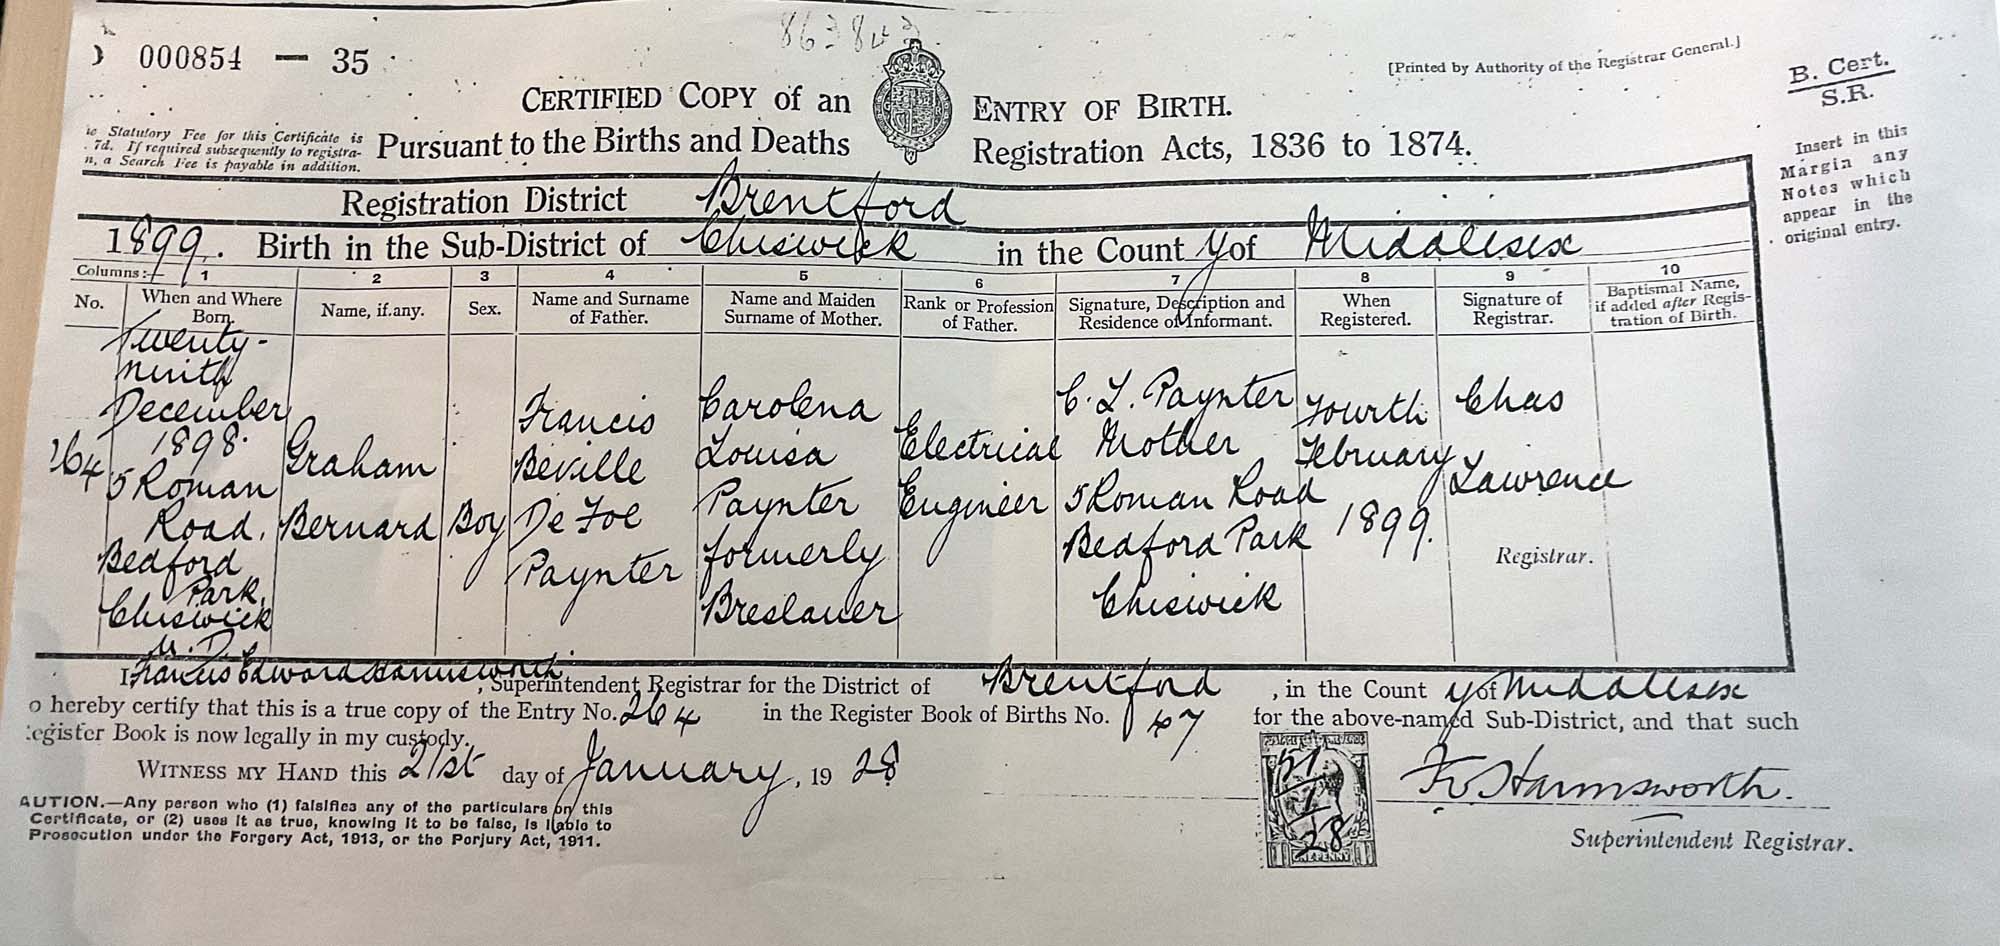 000854 — 35
863843
[Printed by Authority of the Registrar General.]
B. Cert.
S.R.
CERTIFIED COPY of an ENTRY OF BIRTH.
Pursuant to the Births and Deaths Registration Acts, 1836 to 1874.
Statutory Fee for this Certificate is
7d. If required subsequently to registra-
n, a Search Fee is payable in addition.
Insert in this
Margin any
Notes which
appear in the
original entry.
Registration District Brentford
1899. Birth in the Sub-District of Chiswick in the County of Middlesex
Columns:— 1 2 3 4 5 6 7 8 9 10
No.
When and Where
Born.
Name, if any.
Sex.
Name and Surname
of Father.
Name and Maiden
Surname of Mother.
Rank or Profession
of Father.
Signature, Description and
Residence of Informant.
When
Registered.
Signature of
Registrar.
Baptismal Name,
if added after Regis-
tration of Birth.
264
Twenty-
ninth
December
1898.
5 Roman
Road,
Bedford
Park,
Chiswick
U.D.
Graham
Bernard
Boy
Francis
Beville
De Foe
Paynter
Carolena
Louisa
Paynter
formerly
Breslauer
Electrical
Engineer
C. L. Paynter
Mother
5 Roman Road
Bedford Park
Chiswick
Fourth
February
1899.
Chas
Lawrence
Registrar.
I Francis Edward Harmsworth, Superintendent Registrar for the District of Brentford, in the County of Middlesex
o hereby certify that this is a true copy of the Entry No. 264 in the Register Book of Births No. 67 for the above-named Sub-District, and that such
Register Book is now legally in my custody.
WITNESS MY HAND this 21st day of January, 1928
AUTION.—Any person who (1) falsifies any of the particulars on this
Certificate, or (2) uses it as true, knowing it to be false, is liable to
Prosecution under the Forgery Act, 1913, or the Perjury Act, 1911.
1
28
ONE PENNY
Harmsworth.
Superintendent Registrar.